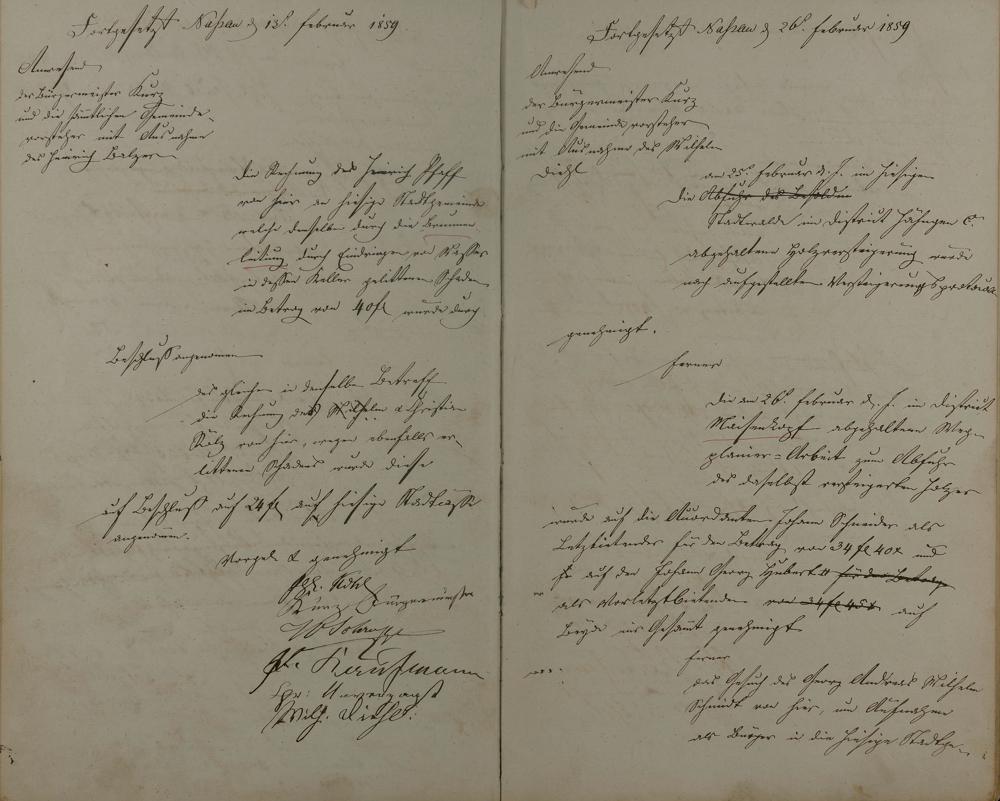 Fortgesetzt Nassau d. 13t. Februar 1859.
Anwesend
der Bürgermeister Kurz
und die sämtlichen Gemeinde-
vorsteher mit Ausnahme
des Heinrich Balzer
Die Rechnung des Heinrich Pfaff
von hier an hiesige Stadtgemeinde
welche derselbe durch die Brunnen
leitung durch Eindringen von Wasser
in dessen Keller gelittenen Schaden
im Betrag von 40 fl wurde durch
Beschluß angenommen
des gleichen in demselben Betreff
die Rechnung des Wilhelm & Christian
Kölz von hier, wegen ebenfalls er-
littenen Schadens wurde diese
auf Beschluß auf 24 fl auf hiesige Stadtcasse
angenommen.
Vorgel. & genehmigt
Kurz Bürgermeister
Kaufmann
Chr: Unverzagt
Wilh. Diehl.
Fortgesetzt Nassau d. 26t. Februar 1859
Anwesend
der Bürgermeister Kurz
und die Gemeindevorsteher
mit Ausnahme des Wilhelm
Diehl
am 25t. Februar d. J. im hiesigen
Die Abfuhr des
Stadtwalde im District Hähngen C.
abgehaltene Holzversteigerung wurde
nach aufgestelltem Versteigerungsprotocoll
genehmigt.
ferner
Die am 26t. Februar d. J. im District
Maisenkopf abgehaltene Weg-
planier-Arbeit zum Abfuhr
des daselbst versteigerten Holzes
wurde auf die Accordanten Johann Schneider als
Letztbietender für den Betrag von 34 fl 40 x und
so auf den Johann Georg Hubert für den Betrag
als Vorletztbietenden von 34 fl 45 x auch
Beyde ins Gesamt genehmigt
ferner
das Gesuch des Georg Andreas Wilhelm
Schmidt von hier, um Aufnahme
als Bürger in die hiesige Stadtge-